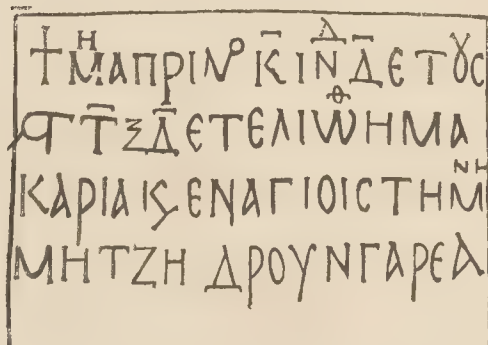 † ΜΗ ΑΠΡΙΝΟ Κ̅ ΙΝΔ Δ̅ ΕΤȢС
͵Ϛ Τ̅ΞΔ̅ ΕΤΕΛΙѠΘ Η ΜΑ
ΚΑΡΙΑ ΚϚ ΕΝ ΑΓΙΟΙС Τ Η ΜΝΗ
ΜΗ ΤΖΗ ΔΡΟΥΝΓΑΡΕΑ